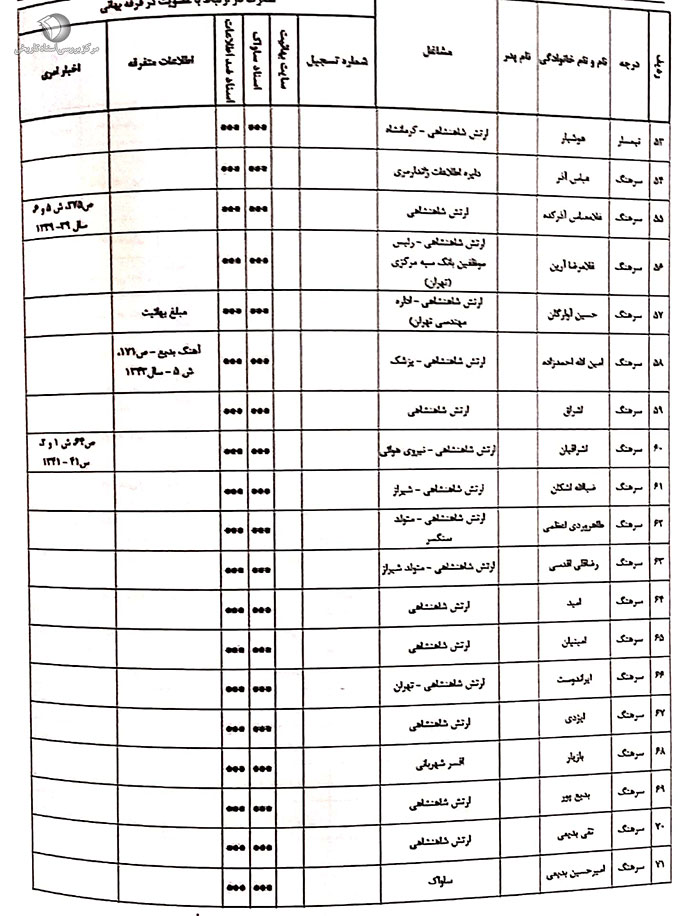 مدرک در ارتباط با عضویت در فرقه بهائی
مرکز بررسی اسناد تاریخی
ردیف درجه نام و نام خانوادگی نام پدر مشاغل شماره تسجیل سایت بهائیت اسناد ساواک اسناد ضد اطلاعات اطلاعات متفرقه اخبار امری
۵۳ تیمسار هوشیار ارتش شاهنشاهی - کرمانشاه *** ***
۵۴ سرهنگ عباس آذر دایره اطلاعات ژاندارمری *** ***
۵۵ سرهنگ غلامعباس آذرکده ارتش شاهنشاهی *** *** ش ۵ و ۶،
سال ۳۹- ۱۳۳۹
۵۶ سرهنگ غلامرضا آرین ارتش شاهنشاهی - رئیس
موظفین بانک سپه مرکزی
(تهران) *** ***
۵۷ سرهنگ حسین آوارگان ارتش شاهنشاهی - اداره
مهندسی تهران) *** *** مبلغ بهائیت
۵۸ سرهنگ امین الله احمدزاده ارتش شاهنشاهی - پزشک *** *** آهنگ بدیع - ص۱۷۱،
ش ۵ - سال۱۳۴۳
۵۹ سرهنگ اشراق ارتش شاهنشاهی *** ***
۶۰ سرهنگ اشراقیان ارتش شاهنشاهی - نیروی هوائی *** *** ص۶۴، ش ۱ و ۲،
س۴۱ - ۱۳۴۱
۶۱ سرهنگ ضیاالله اشکان ارتش شاهنشاهی - شیراز *** ***
۶۲ سرهنگ طاهروردی اعظمی ارتش شاهنشاهی - متولد
سنگسر *** ***
۶۳ سرهنگ رضاقلی اقدسی ارتش شاهنشاهی - متولد شیراز *** ***
۶۴ سرهنگ امید ارتش شاهنشاهی *** ***
۶۵ سرهنگ امینیان ارتش شاهنشاهی *** ***
۶۶ سرهنگ ایراندوست ارتش شاهنشاهی - تهران *** ***
۶۷ سرهنگ ایزدی ارتش شاهنشاهی *** ***
۶۸ سرهنگ بازیار افسر شهربانی *** ***
۶۹ سرهنگ بدیع پور ارتش شاهنشاهی *** ***
۷۰ سرهنگ تقی بدیعی ارتش شاهنشاهی *** ***
۷۱ سرهنگ امیرحسین بدیعی ساواک *** ***